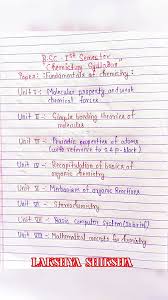 B.SC. Ist Semester
"Chemistry Syllabus"
Paper: Fundamentals of chemistry:
Unit I - Molecular property and weak
chemical forces
Unit II - Simple bonding theories of
molecules
Unit III - Periodic properties of atoms
(with reference to s & p-block)
Unit IV - Recapitulation of basics of
organic chemistry
Unit V - Mechanism of organic Reactions
Unit VI - Stereochemistry
Unit VII - Basic computer system
Unit VIII - Mathematical concepts for chemistry
LAKSHYA SHIKSHA